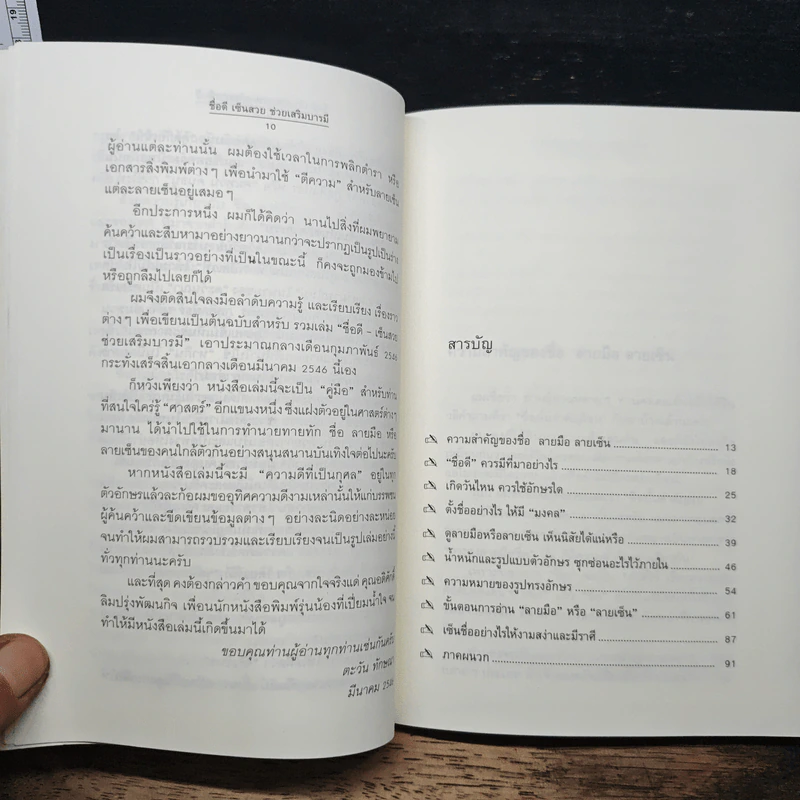 19
ชื่อดี เซ็นสวย ช่วยเสริมบารมี
10
ผู้อ่านแต่ละท่านนั้น ผมต้องใช้เวลาในการพลิกตำรา หรือ
เอกสารสิ่งพิมพ์ต่างๆ เพื่อนำมาใช้ “ตีความ” สำหรับลายเซ็น
แต่ละลายเซ็นอยู่เสมอๆ
อีกประการหนึ่ง ผมก็ได้คิดว่า นานไปสิ่งที่ผมพยายาม
ค้นคว้าและสืบหามาอย่างยาวนานกว่าจะปรากฏเป็นรูปเป็นร่าง
เป็นเรื่องเป็นราวอย่างที่เป็นในขณะนี้ ก็คงจะถูกมองข้ามไป
หรือถูกลืมไปเลยก็ได้
ผมจึงตัดสินใจลงมือลำดับความรู้ และเรียบเรียง เรื่องราว
ต่างๆ เพื่อเขียนเป็นต้นฉบับสำหรับ รวมเล่ม “ชื่อดี - เซ็นสวย
ช่วยเสริมบารมี” เอาประมาณกลางเดือนกุมภาพันธ์ 2546
กระทั่งเสร็จสิ้นเอากลางเดือนมีนาคม 2546 นี้เอง
ก็หวังเพียงว่า หนังสือเล่มนี้จะเป็น “คู่มือ” สำหรับท่าน
ที่สนใจใคร่รู้ “ศาสตร์” อีกแขนงหนึ่ง ซึ่งแฝงตัวอยู่ในศาสตร์ต่างๆ
มานาน ได้นำไปใช้ในการทำนายทายทัก ชื่อ ลายมือ หรือ
ลายเซ็นของคนใกล้ตัวกันอย่างสนุกสนานบันเทิงใจต่อไปนะครับ
หากหนังสือเล่มนี้จะมี “ความดีที่เป็นกุศล” อยู่ในทุก
ตัวอักษรแล้วละก้อผมขออุทิศความดีงามเหล่านั้นให้แก่บรรพชน
ผู้ค้นคว้าและขีดเขียนข้อมูลต่างๆ อย่างละนิดอย่างละหน่อย
จนทำให้ผมสามารถรวบรวมและเรียบเรียงจนเป็นรูปเล่มอย่างนี้
ทั่วทุกท่านนะครับ
และที่สุด คงต้องกล่าวคำ ขอบคุณจากใจจริงแด่ คุณอดิศักดิ์
ลิมปรุ่งพัฒนกิจ เพื่อนนักหนังสือพิมพ์รุ่นน้องที่เปี่ยมน้ำใจ จน
ทำให้มีหนังสือเล่มนี้เกิดขึ้นมาได้
ขอบคุณท่านผู้อ่านทุกท่านเช่นกันครับ
ตะวัน ทักษณา
มีนาคม 2546
สารบัญ
ความสำคัญของชื่อ ลายมือ ลายเซ็น 13
“ชื่อดี” ควรมีที่มาอย่างไร 18
เกิดวันไหน ควรใช้อักษรใด 25
ตั้งชื่ออย่างไร ให้มี “มงคล” 32
ดูลายมือหรือลายเซ็น เห็นนิสัยได้แน่หรือ 39
น้ำหนักและรูปแบบตัวอักษร ซุกซ่อนอะไรไว้ภายใน 46
ความหมายของรูปทรงอักษร 54
ขั้นตอนการอ่าน “ลายมือ” หรือ “ลายเซ็น” 61
เซ็นชื่ออย่างไรให้งามสง่าและมีราศี 87
ภาคผนวก 91